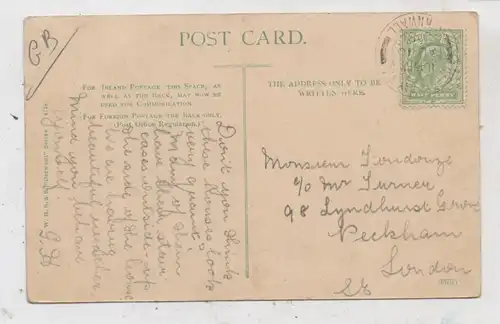 GB
POST CARD.
FOR INLAND POSTAGE THIS SPACE, AS
WELL AS THE BACK, MAY NOW BE
USED FOR COMMUNICATION.
FOR FOREIGN POSTAGE THE BACK ONLY.
(Post Office Regulation.)
THE ADDRESS ONLY TO BE
WRITTEN HERE.
Don't you think
these houses look
very quaint?
Many of them
have their stair
cases outside - up
the side of the house
We are having
beautiful weather
Mind you behave
yourself.
G. H
Monsieur
c/o Mr Turner
98 Lyndhurst Grove
Peckham
London
SE